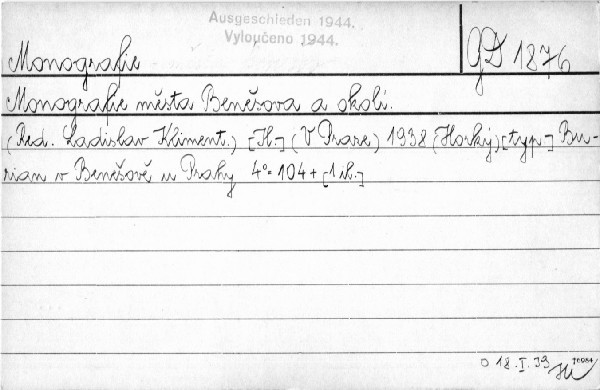 Ausgeschieden 1944.
Vyloučeno 1944.
Monografie
GD 1876
Monografie města Benešova a okolí.
(Red. Ladislav Kliment.) [Il.] (V Praze) 1938 (Horký) [typ.] Bu-
rian v Benešově u Prahy 4° 104 + [1 il.]
0 18. I. 39